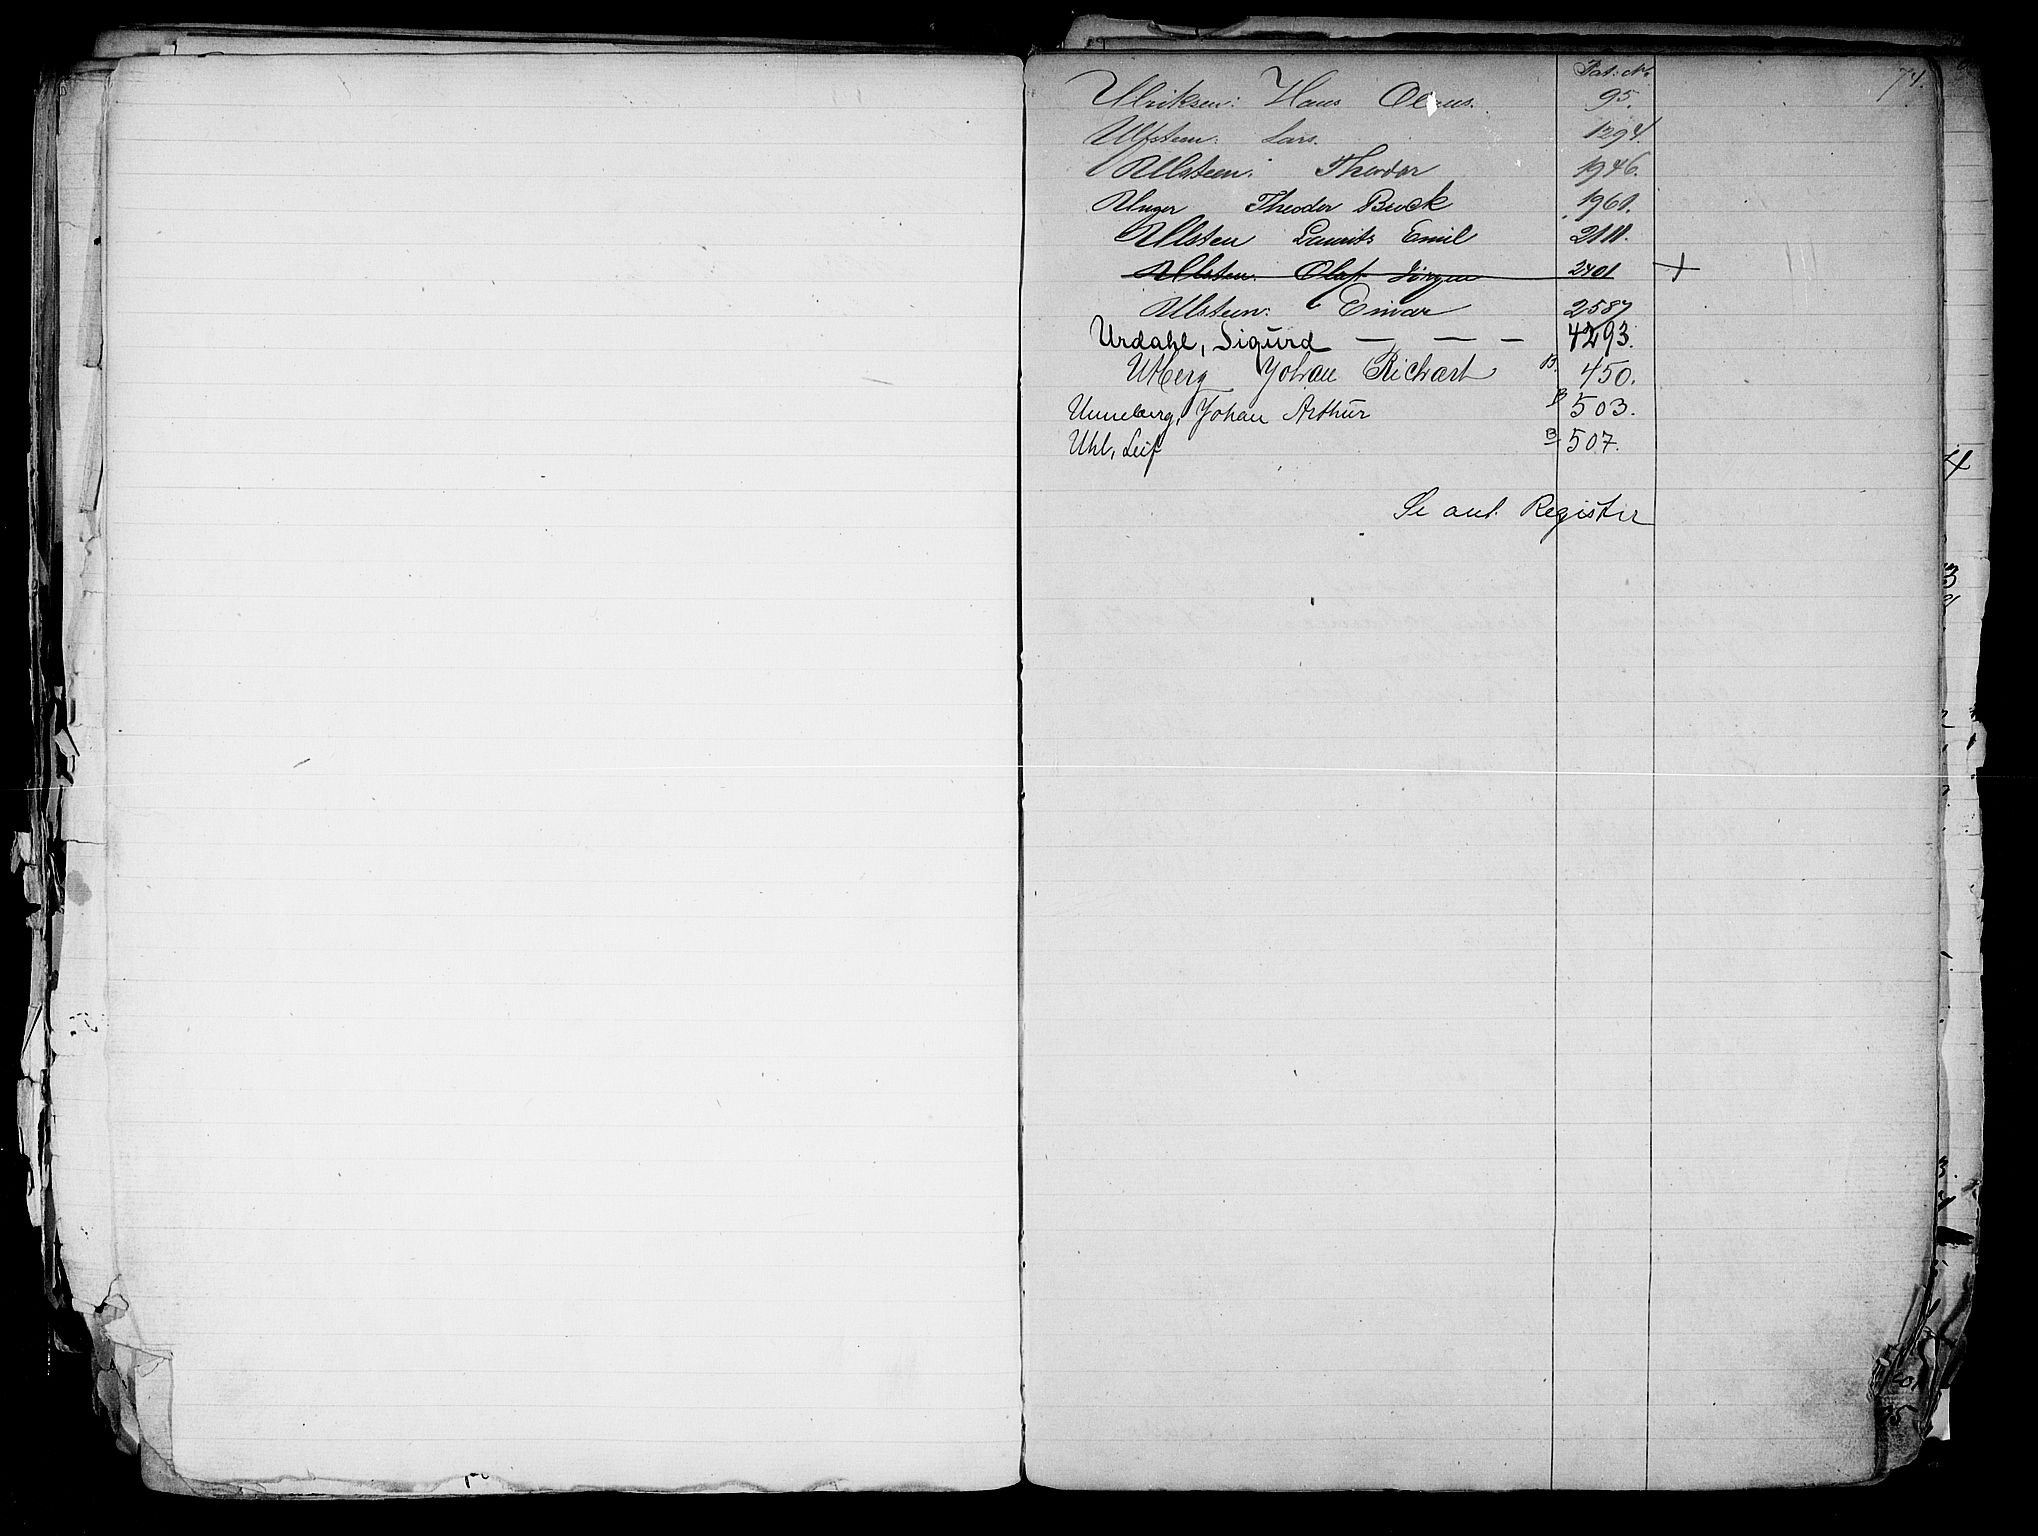 Pat: No
74.
Ulriksen: Hans Olaus. 95.
Ulfsteen: Lars. 1294.
Ullsteen: Theodor 1946.
Unger Theodor Buck 1961.
Ullsten Laurits Emil 2111.
Ullsten. Olaf Jörgen 2401 +
Ullsteen: Einar 2587
Urdahl, Sigurd — — — 4293.
Utberg Johan Richart B. 450.
Unneberg, Johan Arthur B 503.
Uhl, Leif B 507.
Se ant. Register